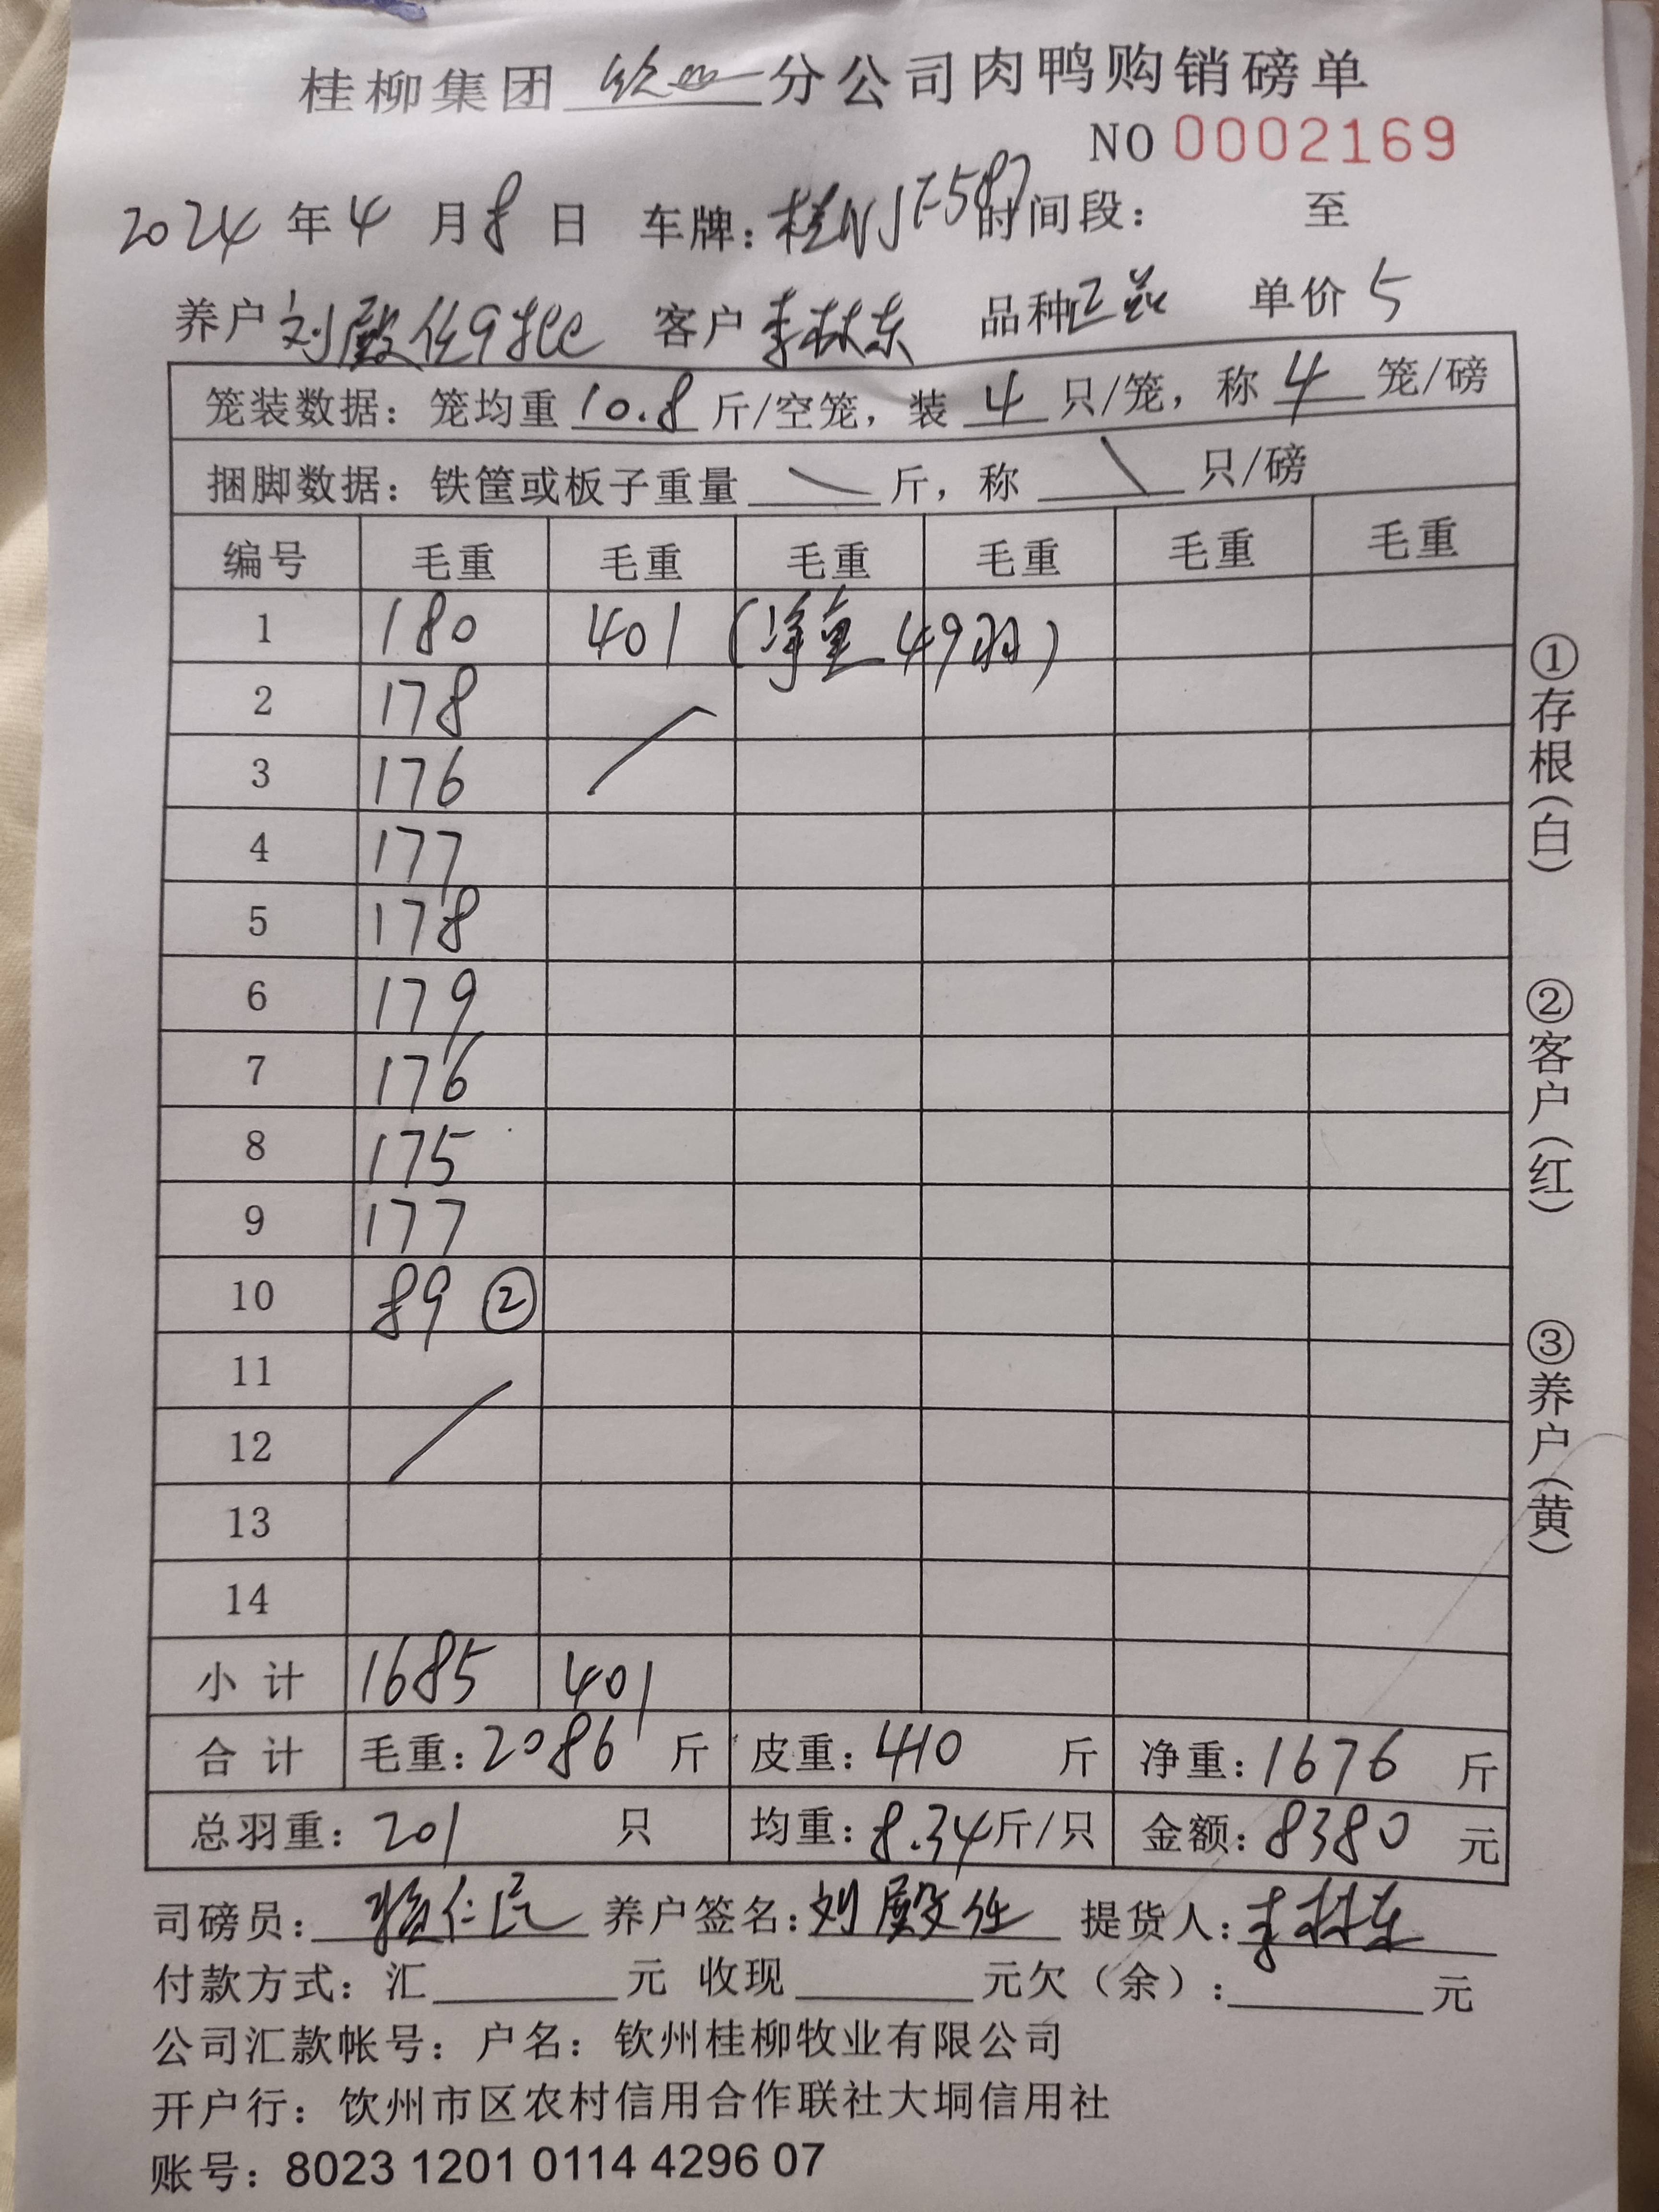 桂柳集团 分公司肉鸭购销磅单
NO 0002169
2024 年 4 月 8 日 车牌: 时间段: 至
养户 刘殿任9批 客户 李林东 品种 单价 5
笼装数据: 笼均重 10.8 斤/空笼, 装 4 只/笼, 称 4 笼/磅
捆脚数据: 铁筐或板子重量 斤, 称 只/磅
编号 毛重 毛重 毛重 毛重 毛重 毛重
1 180 401 (净重 49羽)
2 178
3 176
4 177
5 178
6 179
7 176
8 175
9 177
10 89 ②
11
12
13
14
小计 1685 401
合计 毛重: 2086 斤 皮重: 410 斤 净重: 1676 斤
总羽重: 201 只 均重: 8.34 斤/只 金额: 8380 元
司磅员: 养户签名: 刘殿任 提货人: 李林东
付款方式: 汇 元 收现 元欠(余): 元
公司汇款帐号: 户名: 钦州桂柳牧业有限公司
开户行: 钦州市区农村信用合作联社大垌信用社
账号: 8023 1201 0114 4296 07
①存根(白)
②客户(红)
③养户(黄)